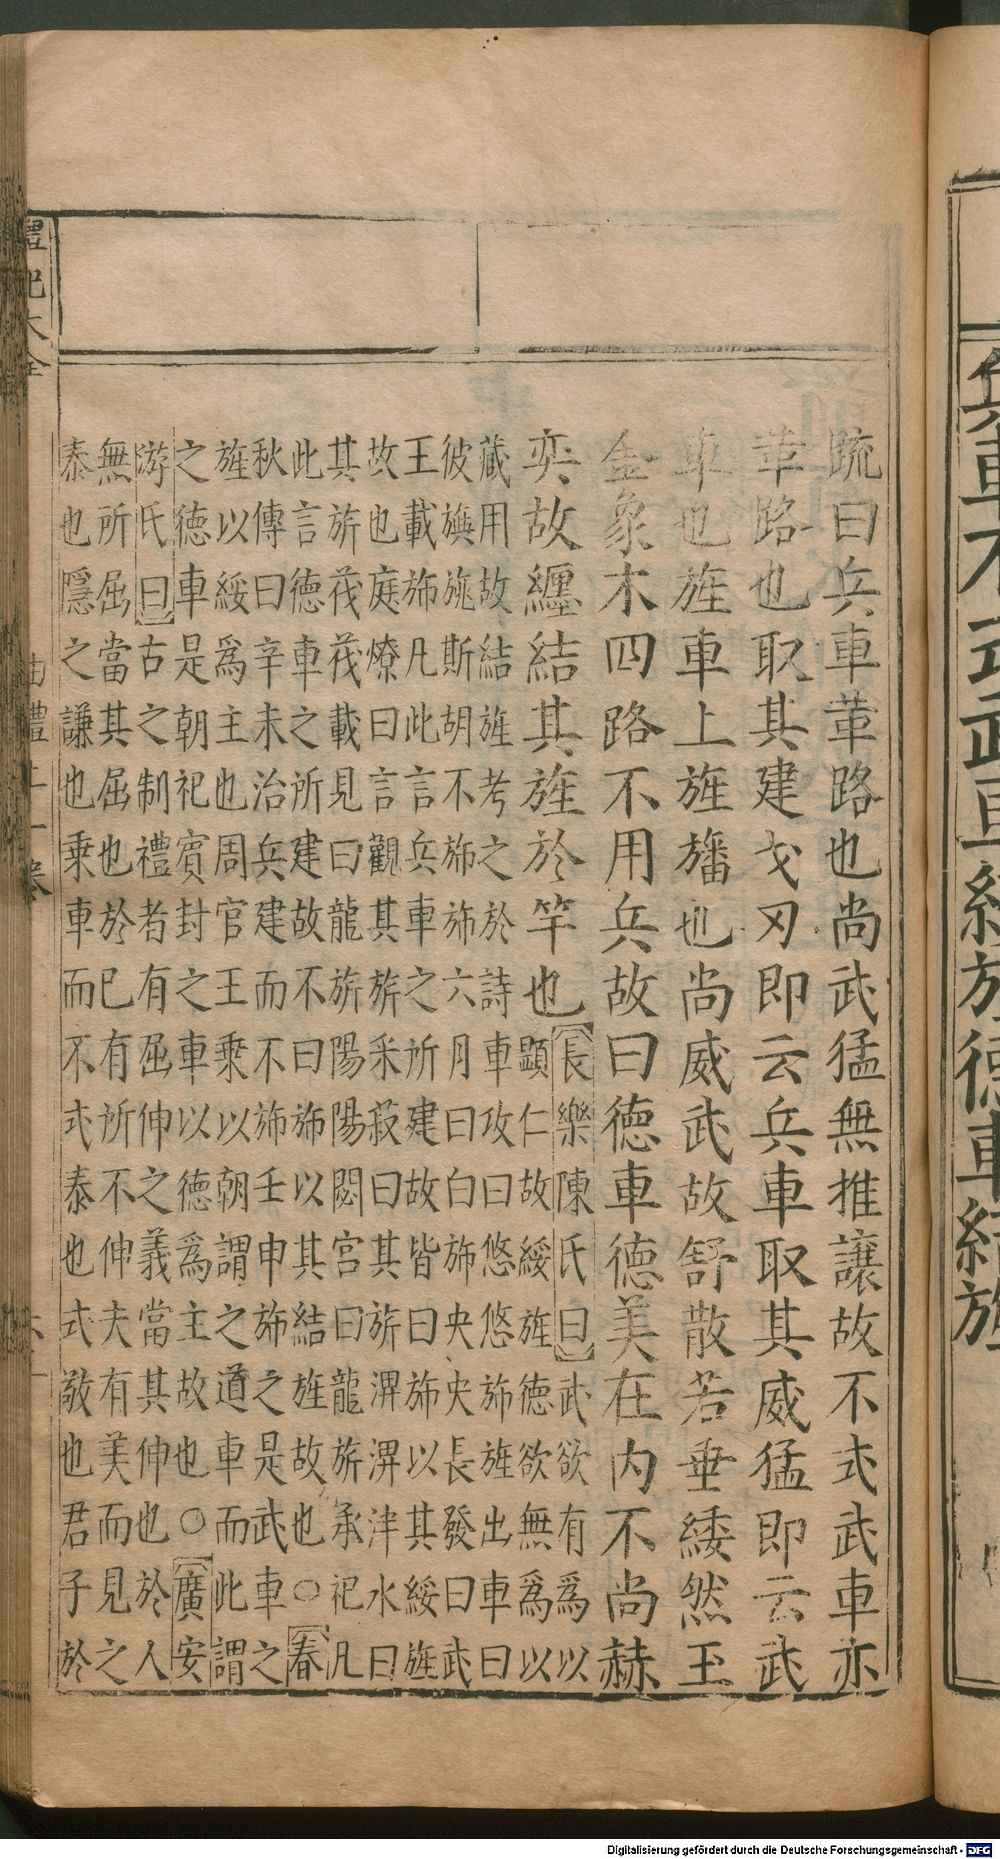 兵車不式武車綏旌德車結旌
疏曰兵車革路也尚武猛無推讓故不式武車亦
革路也取其建戈刃即云兵車取其威猛即云武
車也旌車上旌旛也尚威武故舒散若垂緌然玉
金象木四路不用兵故曰德車德美在內不尚赫
奕故纏結其旌於竿也長樂陳氏曰武欲有為以
顯仁故綏旌德欲無為以
藏用故結旌考之於詩車攻曰悠悠旆旌出車曰
彼旟旐斯胡不旆旆六月曰白旆央央長發曰武
王載旆凡此言兵車之所建故皆曰旆以其綏旌
故也庭燎曰言觀其旂采菽曰其旂淠淠泮水曰
其旂茷茷載見曰龍旂陽陽閟宮曰龍旂承祀凡
此言德車之所建故不曰旆以其結旌故也○春
秋傳曰辛未治兵建而不旆壬申旆之是武車之
旌以綏為主也周官王乘以朝謂之道車而此謂
之德車是朝祀賓封之車以德為主故也○廣安
游氏曰古之制禮者有屈伸之義當其伸也於人
無所屈當其屈也於已有所不伸夫有美而見之
泰也隱之謙也乘車而不式泰也式敬也君子於
禮記大全
Digitalisierung gefördert durch die Deutsche Forschungsgemeinschaft - DFG